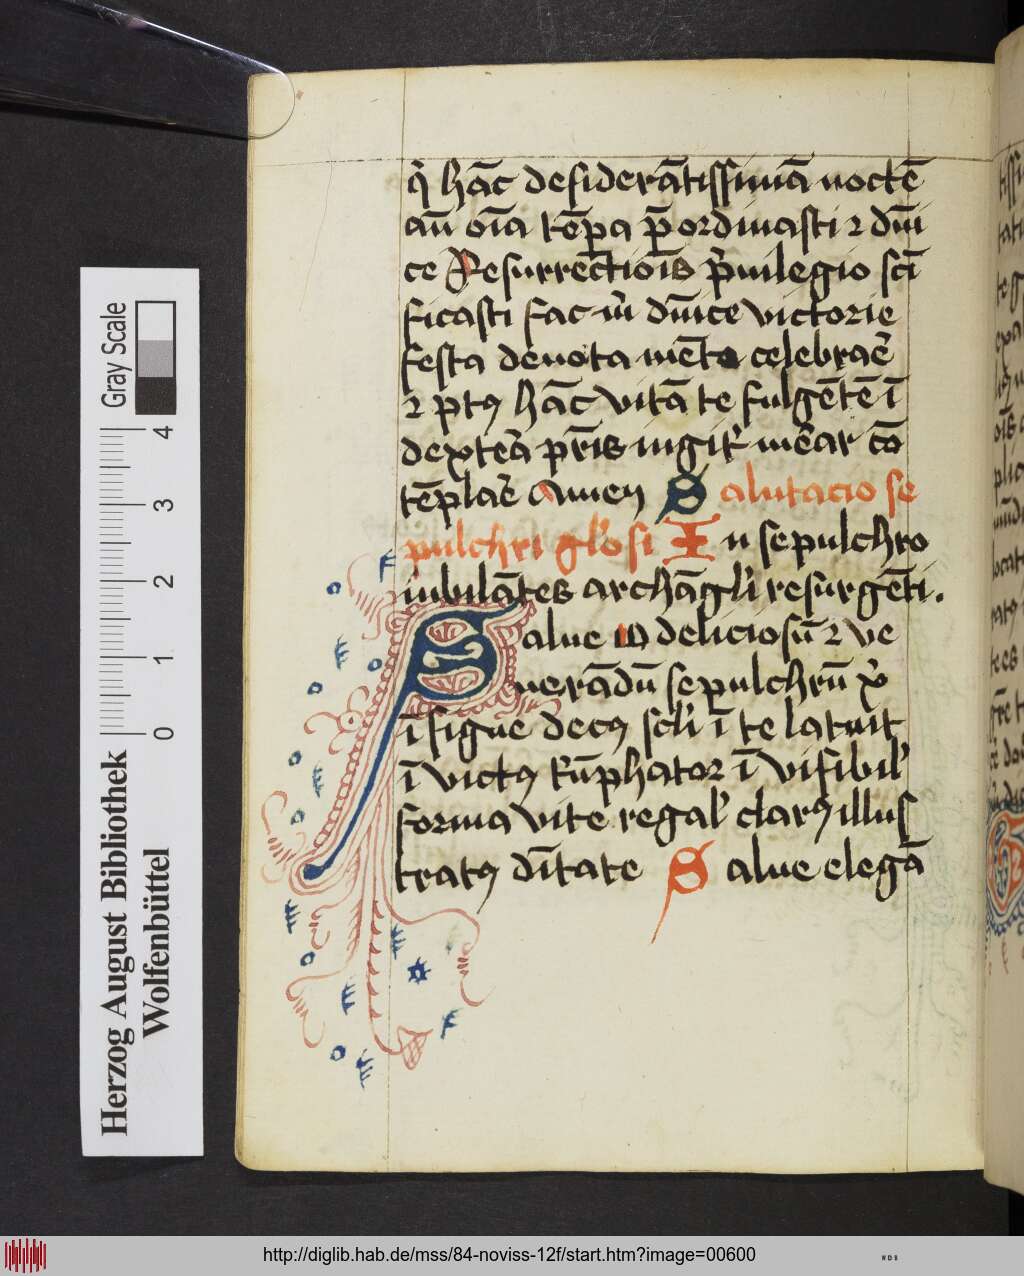 q̇ hāc desiderātissimā noctē
an̄ oīa tēpa p̄ordinasti ⁊ dnī
ce Resurrectiōis p̓uilegio scī
ficasti fac m̄ dn̄ice victorie
festa deuota mēte celebrar̄
⁊ ptꝰ hāc vitā te fulgētē ī
dext̄ra pr̄is iugit̓ mer̄ar cō
tēplar̄ Amen Salutacio se
pulchri gl̓osi In sepulchro
iubilātes archāgl̓i resurgēti.
Salue deliciosū ⁊ ve
nerādū sepulchrū x̓
īsigne decꝰ scl̓i ī te latuit
ī victꝰ t̓ūphator ī visibil̓
forma vite regal̓ clarꝰ illus
tratꝰ dītate Salue elegā
Herzog August Bibliothek
Wolfenbüttel
0 1 2 3 4
Gray Scale
http://diglib.hab.de/mss/84-noviss-12f/start.htm?image=00600